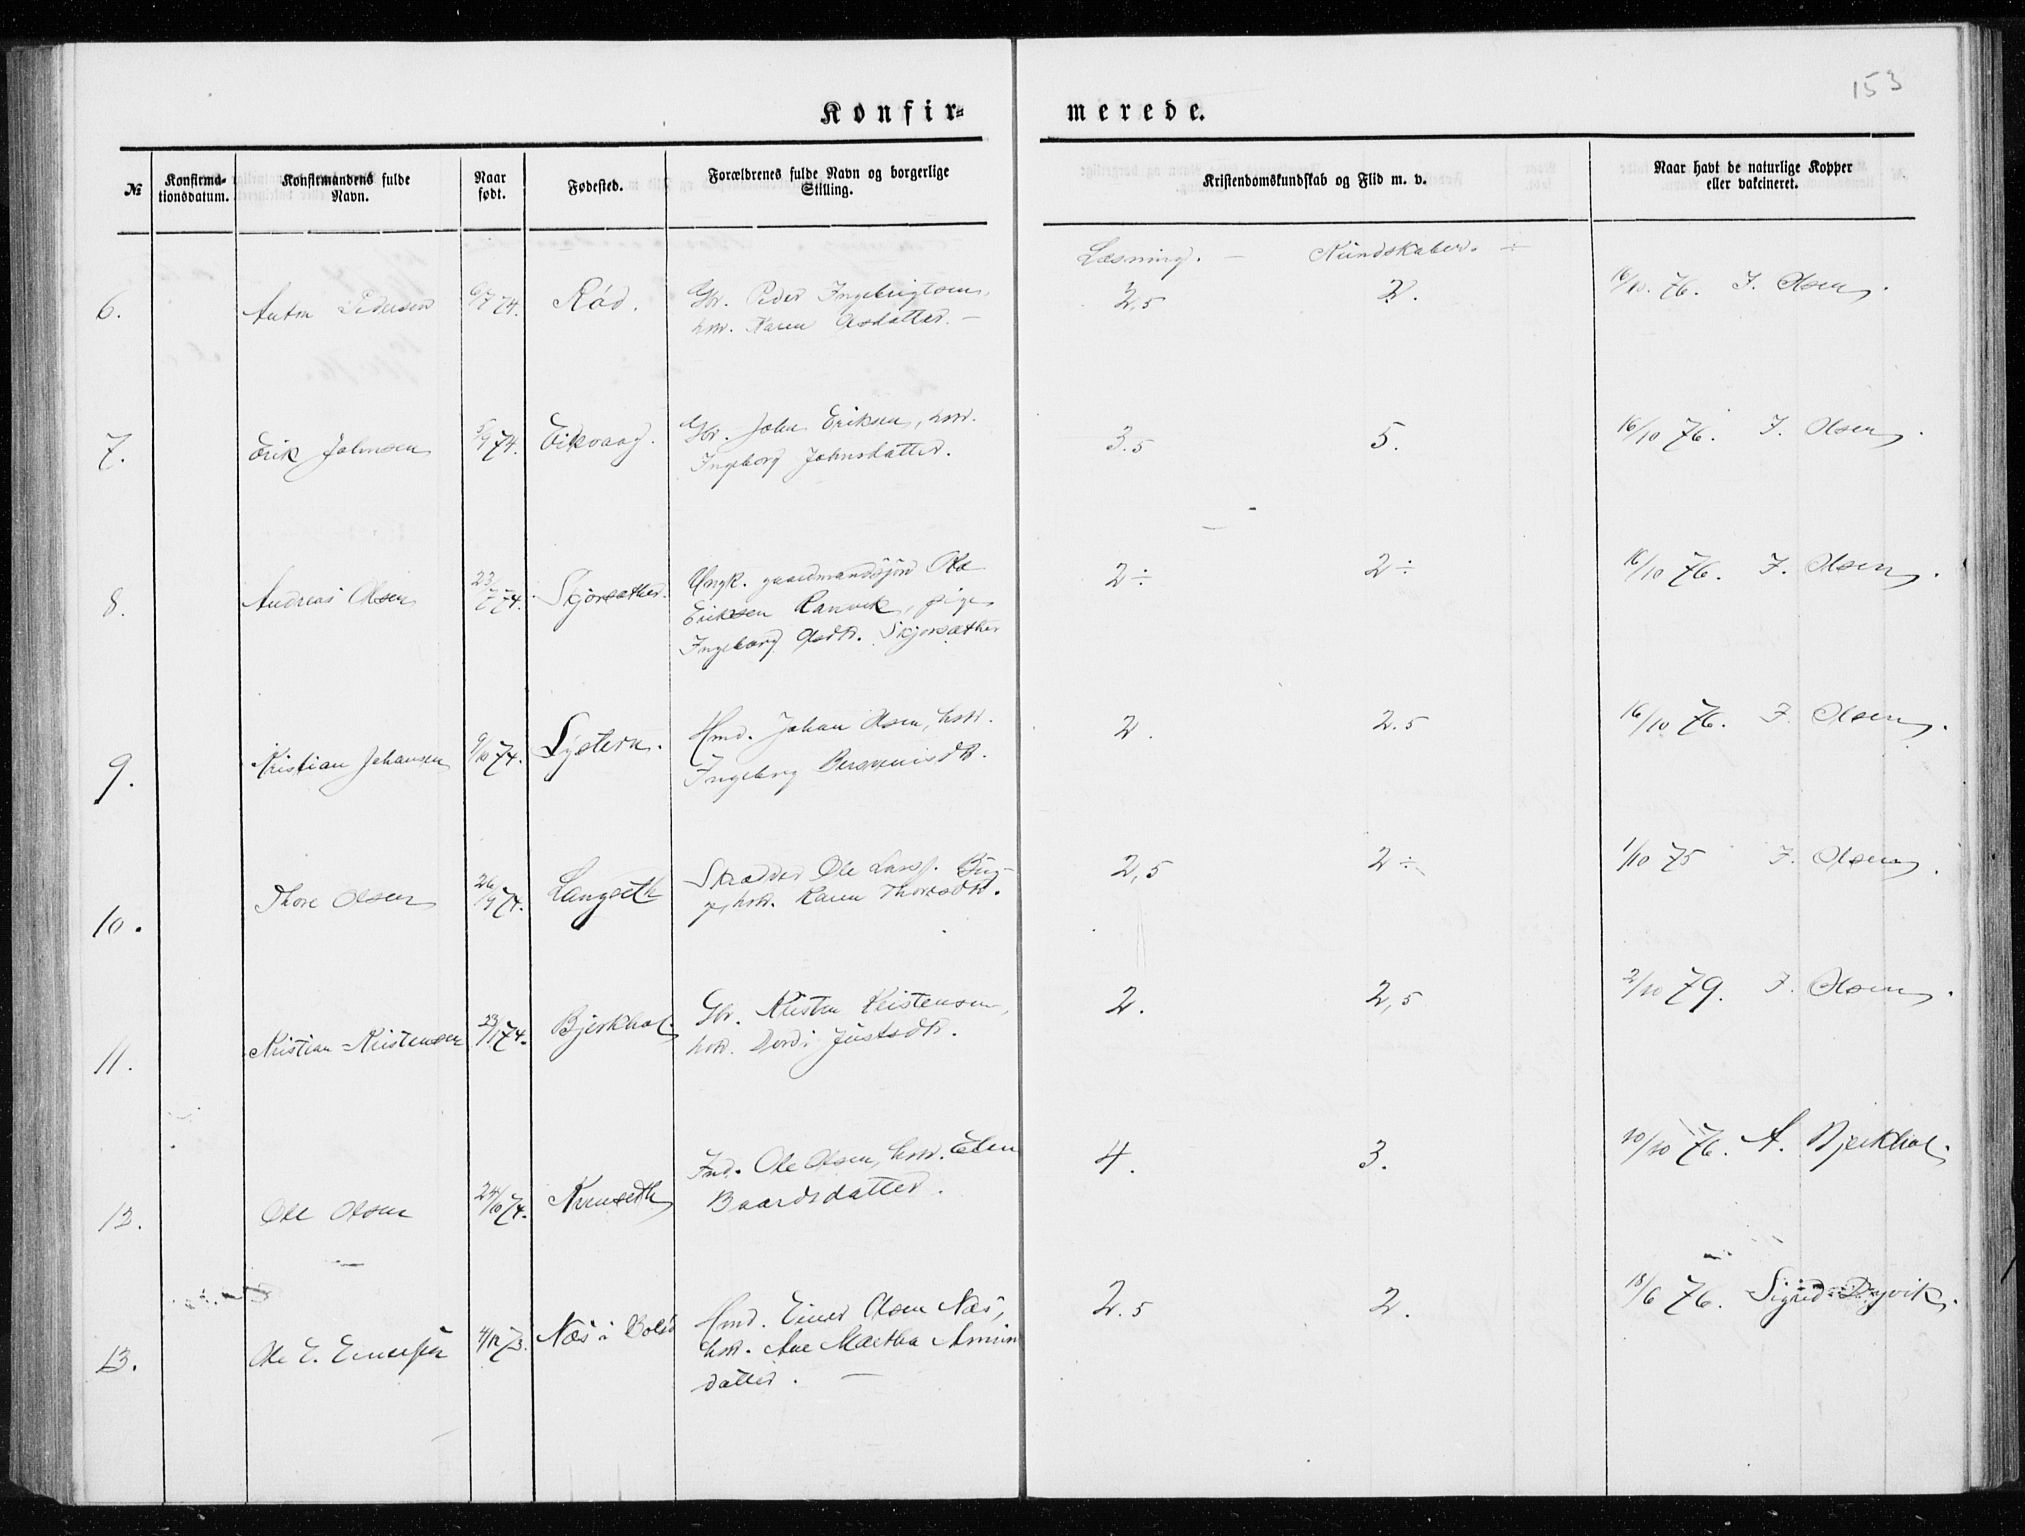 153
Konfir-
merede.
№
Konfirma-
tionsdatum.
Konfirmandens fulde
Navn.
Naar
født.
Fødested.
Forældrenes fulde Navn og borgerlige
Stilling.
Kristendomskundskab og Flid m. v.
Naar havt de naturlige Kopper
eller vakcineret.
Læsning. — Kundskaber. ÷
6. Anton Pedersen 6/7 74. Rød. Gbr. Peder Ingebrigtsen,
hstr. Karen Olsdatter. —
2,5 2. 16/10. 76. I. Olsen.
7. Erik Johnsen 5/9 74. Eikvaag. Gbr. John Eriksen, hstr.
Ingeborg Johnsdatter.
3.5 5. 16/10 76. I. Olsen.
8. Andreas Olsen 23/7 74. Skjorsæther. Ungk. gaardmandssøn Ole
Eriksen Ranvik, pige
Ingeborg Olsdtr. Skjorsæther
2÷ 2÷ 16/10 76. I. Olsen.
9. Kristian Johansen 9/10 74. Lystern. Hmd. Johan Olsen, hstr.
Ingeborg
2. 2.5 16/10 76. I. Olsen.
10. Thore Olsen 26/9 74. Langseth Skrædder Ole Larss. Byg-
ge, hstr. Karen Thoresdtr.
2,5 2÷ 1/10 75 I. Olsen.
11. Kristian Kristensen 23/1 74. Bjerkhol. Gbr. Kristen Kristensen,
hstr. Dordi Justsdtr.
2. 2,5 2/10 79. I. Olsen.
12. Ole Olsen 24/6 74. Ind. Ole Olsen, hstr. Elen
Baardsdatter.
4. 3. 10/10 76. A. Bjerkhol.
13. Ole E. Einersen 4/12 73. Næs i Bolsø Hmd. Einer Olsen Næs,
hstr. Ane Martha Amun
datter. —
2.5 2. 18/6 76. Sigrid Dyvik.